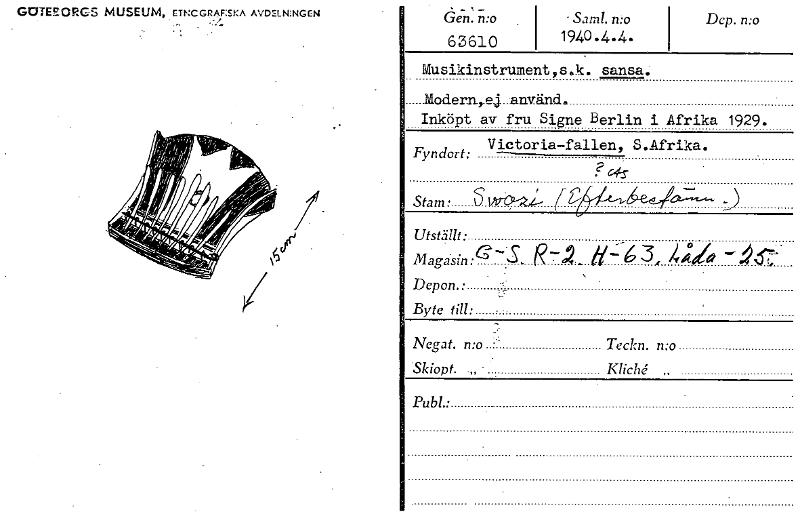 GÖTEBORGS MUSEUM, ETNOGRAFISKA AVDELNINGEN
15cm
Gen. n:o Saml. n:o Dep. n:o
63610 1940.4.4.
Musikinstrument,s.k. sansa.
Modern,ej använd.
Inköpt av fru Signe Berlin i Afrika 1929.
Fyndort: Victoria-fallen, S.Afrika.
?
Stam: Swazi (Efterbestämn.)
Utställt:
Magasin: G-S. R-2. H-63. Låda-25.
Depon.:
Byte till:
Negat. n:o Teckn. n:o
Skiopt. „ Kliché „
Publ.: